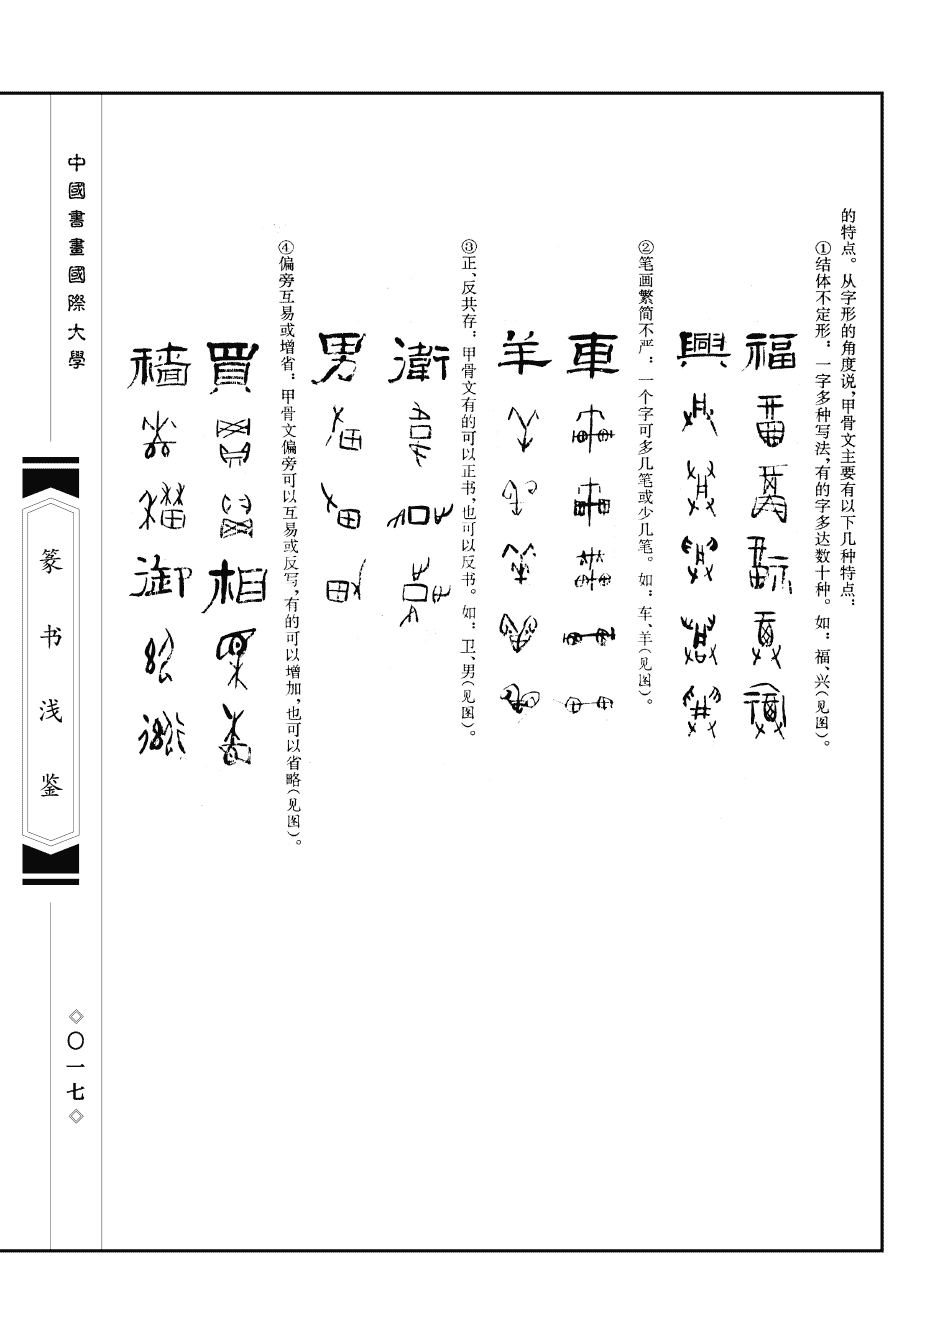 的特点。从字形的角度说,甲骨文主要有以下几种特点：
①结体不定形：一字多种写法,有的字多达数十种。如：福、兴(见图)。
福
興
②笔画繁简不严：一个字可多几笔或少几笔。如：车、羊(见图)。
車
羊
③正、反共存：甲骨文有的可以正书,也可以反书。如：卫、男(见图)。
衛
男
④偏旁互易或增省：甲骨文偏旁可以互易或反写,有的可以增加,也可以省略(见图)。
買
相
穡
御
中國書畫國際大學
篆书浅鉴
〇一七